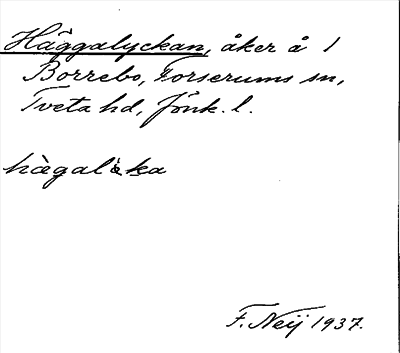 Häggalyckan, åker å 1
Borrebo, Forserums sn,
Tveta hd, Jönk. l.
F. Neij 1937.